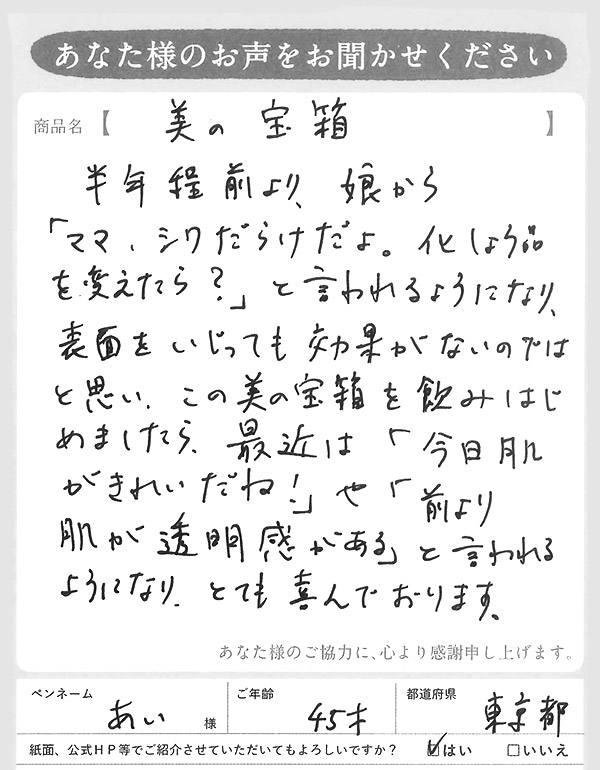 あなた様のお声をお聞かせください
商品名【 美の宝箱 】
半年程前より、娘から
「ママ、シワだらけだよ。化しょう品
を変えたら?」と言われるようになり、
表面をいじっても効果がないのでは
と思い、この美の宝箱を飲みはじ
めましたら、最近は「今日肌
がきれいだね!」や「前より
肌が透明感がある」と言われる
ようになり、とても喜んでおります。
あなた様のご協力に、心より感謝申し上げます。
ペンネーム あい 様 ご年齢 45才 都道府県 東京都
紙面、公式HP等でご紹介させていただいてもよろしいですか? ☑はい □いいえ